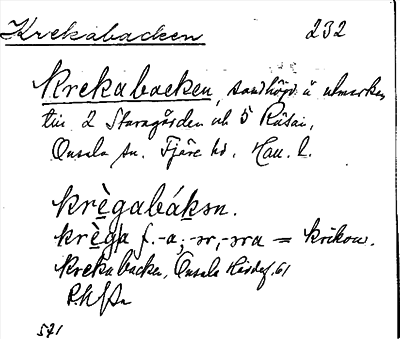 Krekabacken 232
Krekabacken, sandhöjd å utmarken
till 2 Storagården och 5 Råsai,
Onsala sn. Fjäre hd. Hall. l.
krègabákən.
krèga f. -a, -ər, -əra = krikon.
Krekabacken, Onsala Härdef. 61
571